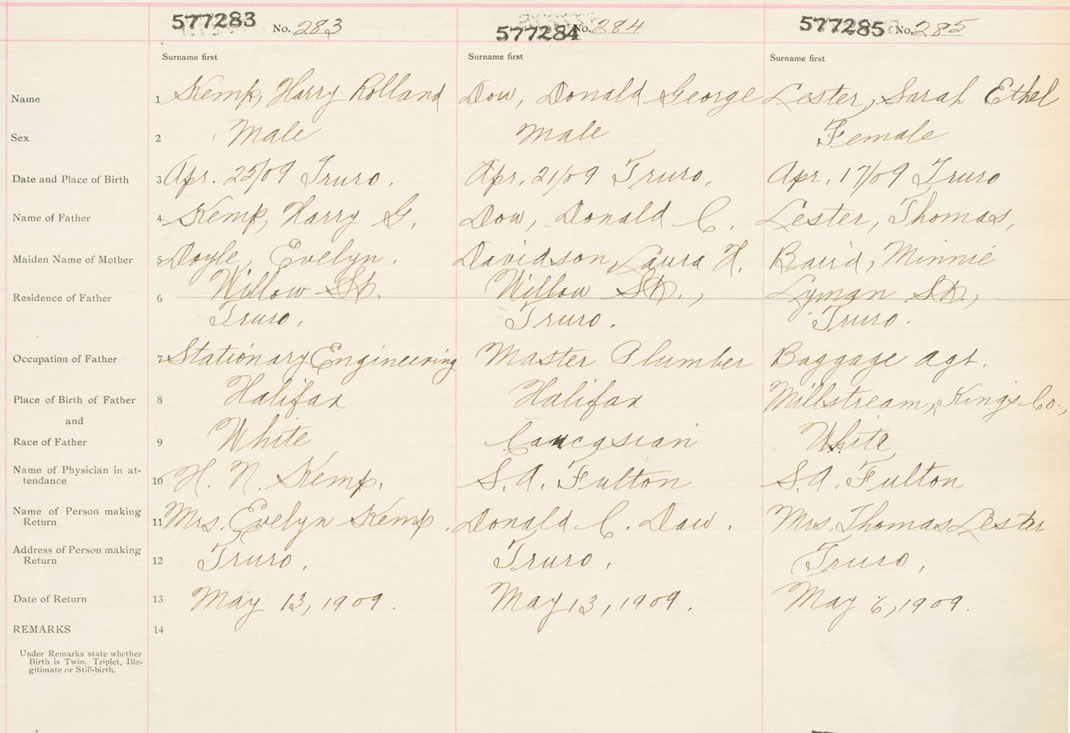 577283 No. 283 577284 No. 284 577285 No. 285
Surname first Surname first Surname first
Name 1 Kemp, Harry Rolland Dow, Donald George Lester, Sarah Ethel
Sex 2 Male Male Female
Date and Place of Birth 3 Apr. 25/09 Truro. Apr. 21/09 Truro. Apr. 17/09 Truro
Name of Father 4 Kemp, Harry G. Dow, Donald C. Lester, Thomas,
Maiden Name of Mother 5 Doyle, Evelyn. Davidson, Laura H. Baird, Minnie
Residence of Father 6 Willow St. Willow St., Lyman St.,
Truro. Truro. Truro.
Occupation of Father 7 Stationary Engineering Master Plumber Baggage agt.
Place of Birth of Father 8 Halifax Halifax Millstream, Kings Co.,
and
Race of Father 9 White Caucasian White
Name of Physician in at-
tendance 10 H. N. Kemp. S. A. Fulton S. A. Fulton
Name of Person making
Return 11 Mrs. Evelyn Kemp. Donald C. Daw. Mrs. Thomas Lester
Address of Person making
Return 12 Truro. Truro. Truro,
Date of Return 13 May 13, 1909. May 13, 1909. May 6, 1909.
REMARKS 14
Under Remarks state whether
Birth is Twin, Triplet, Ille-
gitimate or Still-birth.